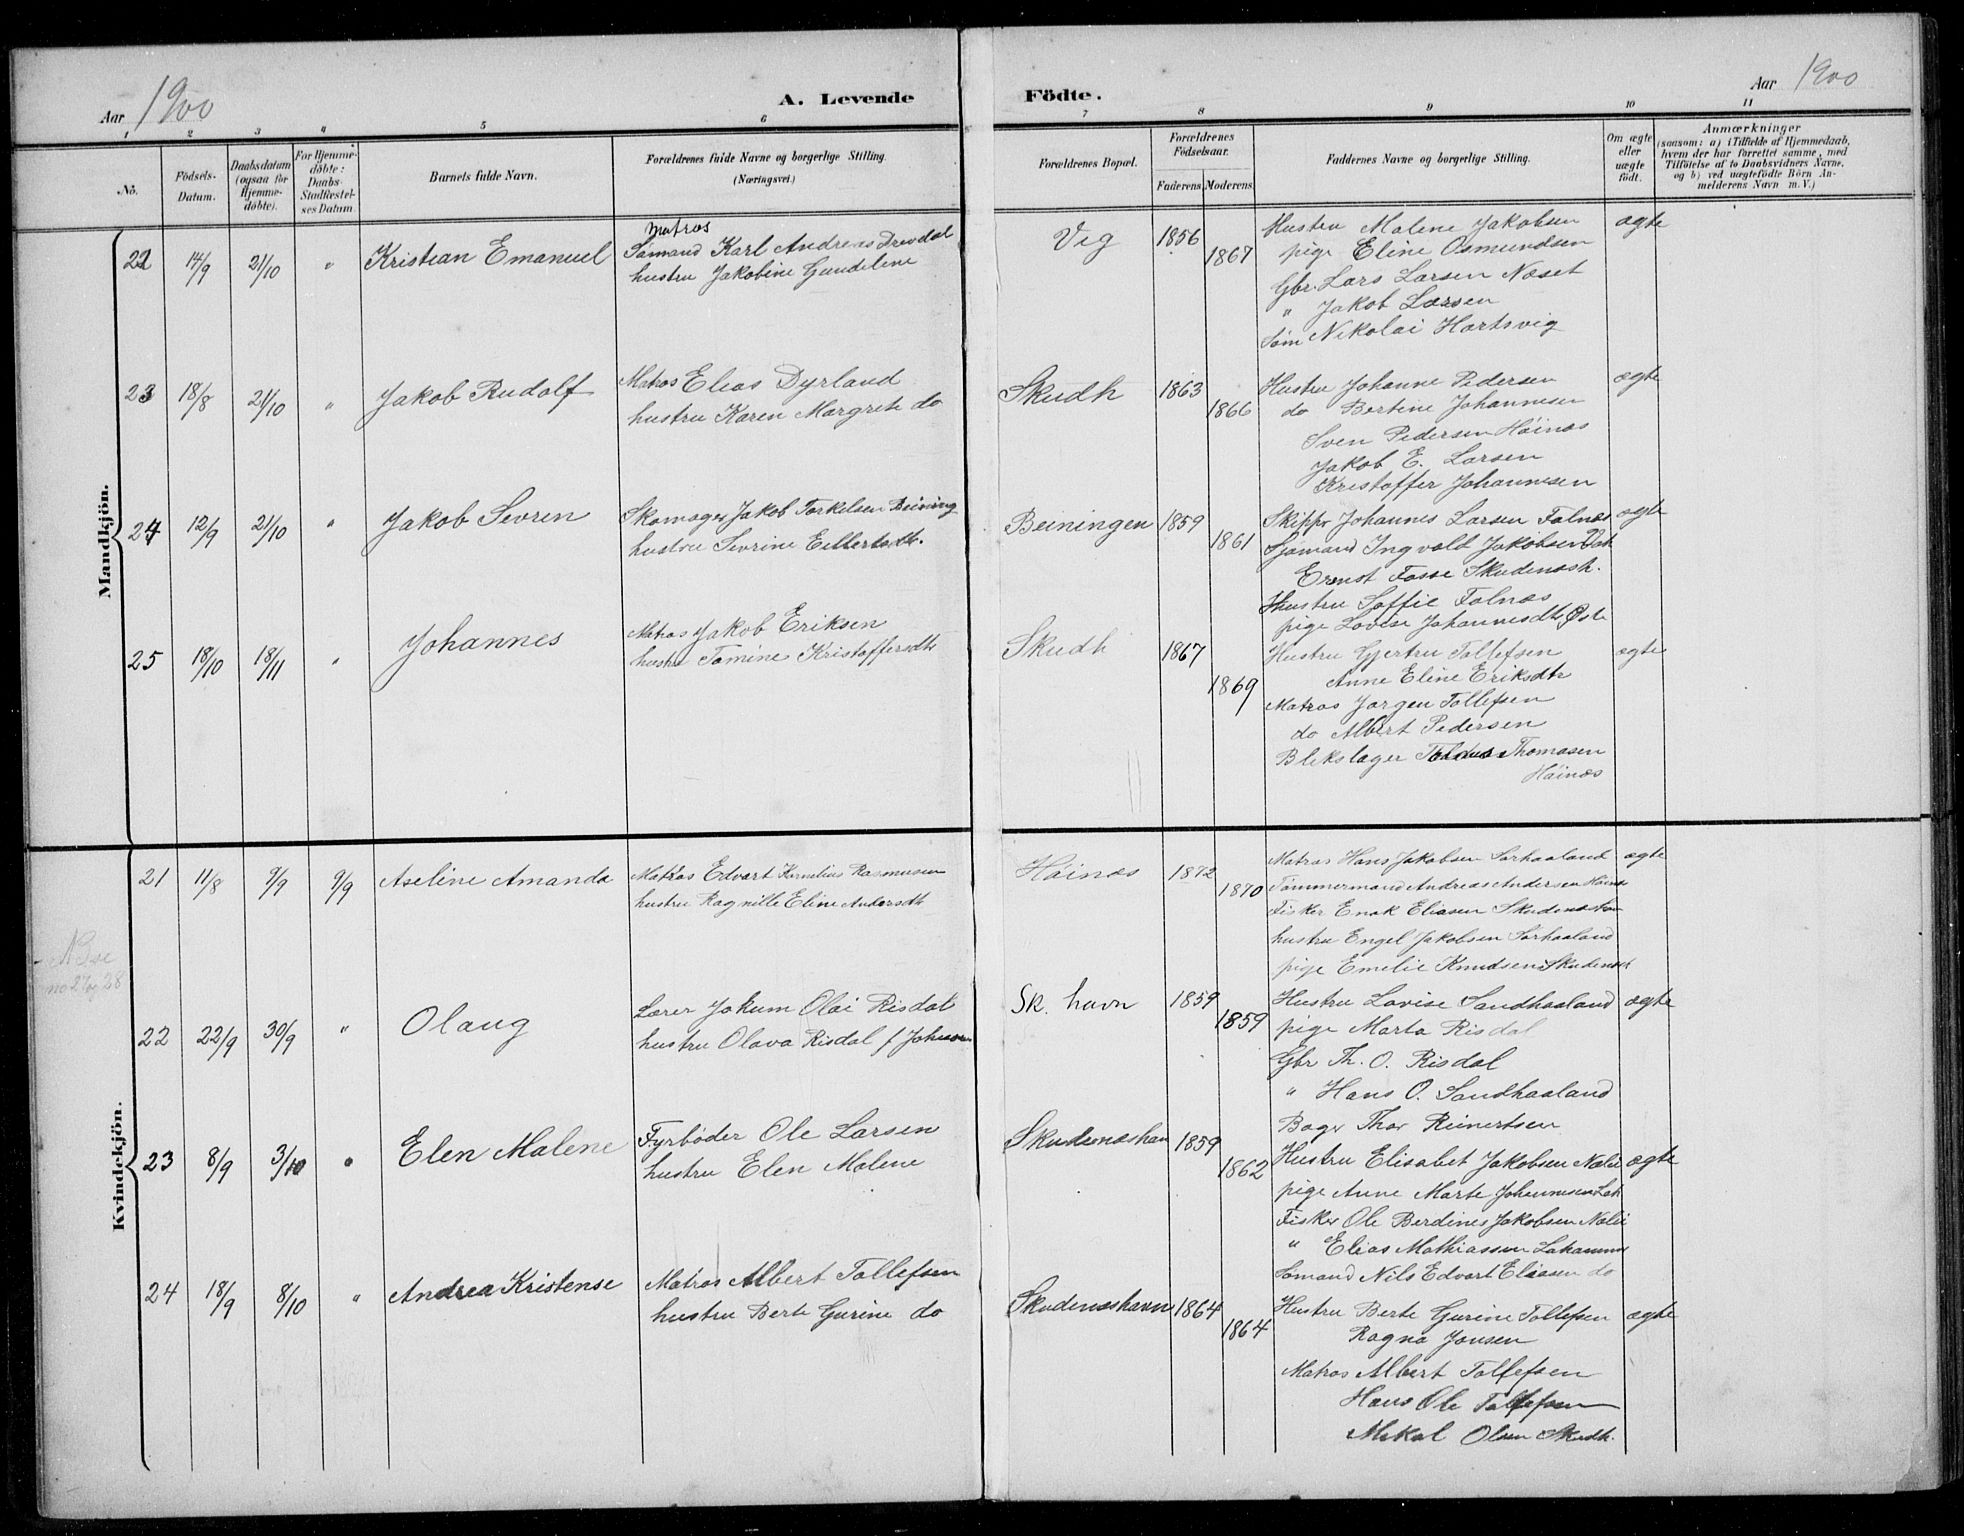 Aar 1900
A. Levende Födte.
Aar 1900
1 2 3 4 5 6 7 8 9 10 11
No.
Födsels-Datum.
Daabsdatum (ogsaa for Hjemme-döbte).
For Hjemme-döbte: Daabs-Stadfestel-ses Datum
Barnets fulde Navn.
Forældrenes fulde Navne og borgerlige Stilling.
(Næringsvei.)
Forældrenes Bopæl.
Forældrenes Födselsaar.
Faderens Moderens
Faddernes Navne og borgerlige Stilling.
Om ægte eller uægte födt.
Anmærkninger
(saasom: a) i Tilfælde af Hjemmedaab, hvem der har forrettet samme, med Tilföielse af to Daabsvidners Navne, og b) ved uægtefödte Börn An-melderens Navn m. V.)
Mandkjön.
22 14/9 21/10 " Kristian Emanuel
Matros
Sömand Karl Andreas Drevdal
hustru Jakobine Gundeline
Vig 1856 1867
Hustru Malene Jakobsen
pige Eline Osmundsen
Gbr. Lars Larsen Næset
" Jakob Larsen
Söm Nikolai Hartsvig
ægte
23 18/8 21/10 " Jakob Rudolf
Matros Elias Dyrland
hustru Karen Margrete do
Skudh 1863 1866
Hustru Johanne Pedersen
do Bertine Johannesen
Sven Pedersen Höinæs
Jakob E. Larsen
Kristoffer Johannesen
ægte
24 12/9 21/10 " Jakob Sevren
Skomager Jakob Torkelsen Beining
hustru Sevrine Eilertsdt.
Beiningen 1859 1861
Skippr Johannes Larsen Falnæs
Sjömand Ingvald Jakobsen
Ernst Fosse Skudenæsh.
Hustru Soffie Falnæs
pige Lovise Johannesdt.
ægte
25 18/10 18/11 " Johannes
Matros Jakob Eriksen
hustru Tomine Kristoffersdtr
Skudh 1867 1869
Hustru Gjertru Tollefsen
Anne Eline Eriksdtr
Matros Jörgen Tollefsen
do Albert Pedersen
Blekslager Thomasen
Höinæs
ægte
Kvindekjön.
21 11/8 9/9 9/9 Aseline Amanda
Matros Edvart Kornelius Rasmusen
hustru Ragnille Eline Andersdt
Höinæs 1872 1870
Matros Hans Jakobsen Sørhaaland
Tömmermand Andreas Andersen Höinæs
Fisker Enok Eliasen Skudenæshavn
hustru Engel Jakobsen Sørhaaland
pige Emelie Knudsen Skudenæs
ægte
no 27 og 28
22 22/9 30/9 " Olaug
Lærer Jokum Olai Risdal
hustru Olava Risdal f Johnsen
Sk. havn 1859 1859
Hustru Lovise Sandhaaland
pige Marta Risdal
Gbr Th. O. Risdal
" Hans O. Sandhaaland
Bager Thor Reinertsen
ægte
23 8/9 3/10 " Elen Malene
Fyrböder Ole Larsen
hustru Elen Malene
Skudenæshavn 1859 1862
Hustru Elisabet Jakobsen
pige Anne Marte Johannesen
Fisker Ole Berdines Jakobsen
" Elias Mathiassen Lahammer
Sömand Nils Edvart Eliasen do
ægte
24 18/9 8/10 " Andrea Kristense
Matros Albert Tollefsen
hustru Berte Gurine do
Skudenæshavn 1864 1864
Hustru Berte Gurine Tollefsen
Ragna Jonsen
Matros Albert Tollefsen
Hans Ole Tollefsen
Mikal Olsen Skudh.
ægte